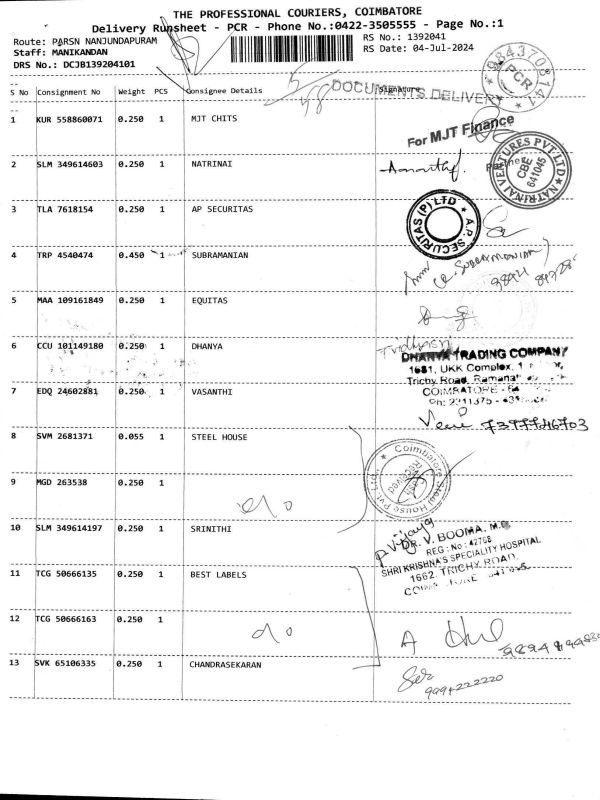 THE PROFESSIONAL COURIERS, COIMBATORE
Delivery Runsheet - PCR - Phone No.:0422-3505555 - Page No.:1
Route: PARSN NANJUNDAPURAM
Staff: MANIKANDAN
DRS No.: DCJB139204101
RS No.: 1392041
RS Date: 04-Jul-2024
9843708141
PCR
S No Consignment No Weight PCS Consignee Details Signature
DOCUMENTS DELIVERY
1 KUR 558860071 0.250 1 MJT CHITS
For MJT Finance
Partner
2 SLM 349614603 0.250 1 NATRINAI
NATRINAI VENTURES PVT LTD
CBE
641045
3 TLA 7618154 0.250 1 AP SECURITAS
A.P. SECURITAS (P) LTD
4 TRP 4540474 0.450 1 SUBRAMANIAN
5 MAA 109161849 0.250 1 EQUITAS
6 CCU 101149180 0.250 1 DHANYA
DHANYA TRADING COMPANY
1681, UKK Complex,
Trichy Road,
COIMBATORE - 64
Ph: 2311375
7 EDQ 24602881 0.250 1 VASANTHI
8 SVM 2681371 0.055 1 STEEL HOUSE
Coimbatore Steel House Pvt Ltd
9 MGD 263538 0.250 1
10 SLM 349614197 0.250 1 SRINITHI
P. Vijaya
DR. V. BOOMA, M.D
REG: No: 42768
SHRI KRISHNA'S SPECIALITY HOSPITAL
1662, TRICHY ROAD,
11 TCG 50666135 0.250 1 BEST LABELS
12 TCG 50666163 0.250 1
13 SVK 65106335 0.250 1 CHANDRASEKARAN